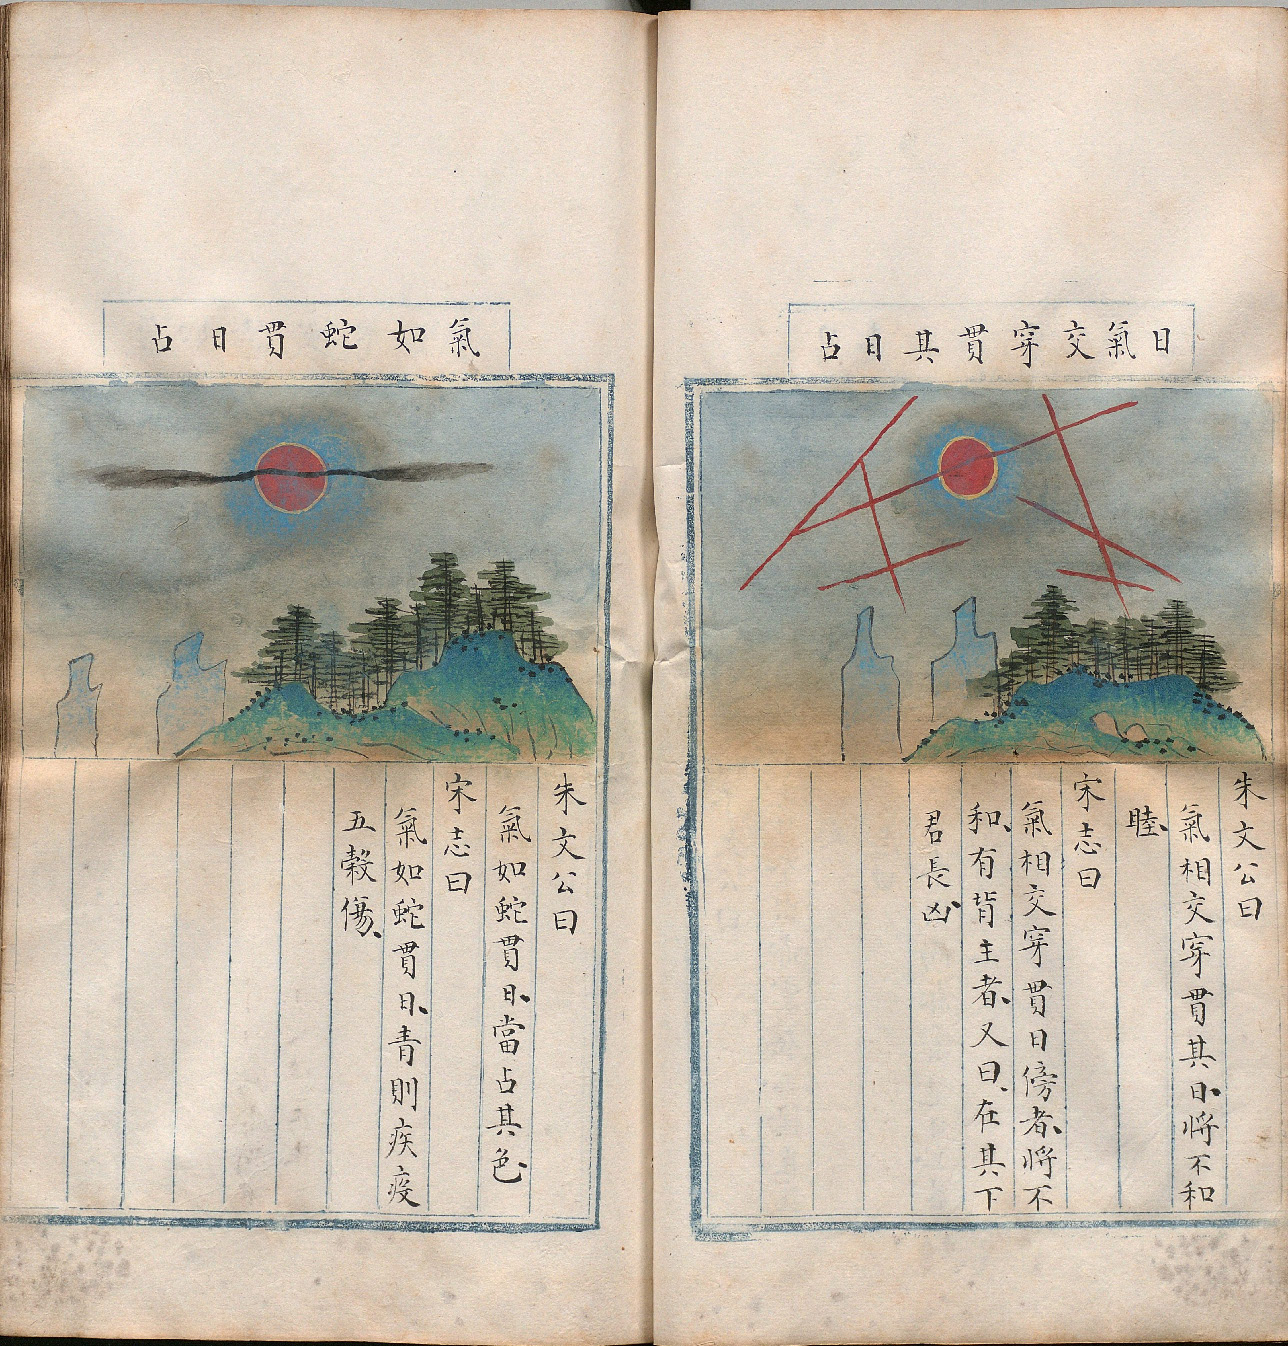 日氣交穿貫其日占
朱文公曰
氣相交穿貫其日、將不和
睦、
宋志曰
氣相交穿貫日傍者、將不
和、有背主者、又曰、在其下
君長凶
氣如蛇貫日占
朱文公曰
氣如蛇貫日、當占其色
宋志曰
氣如蛇貫日、青則疾疫
五穀傷、